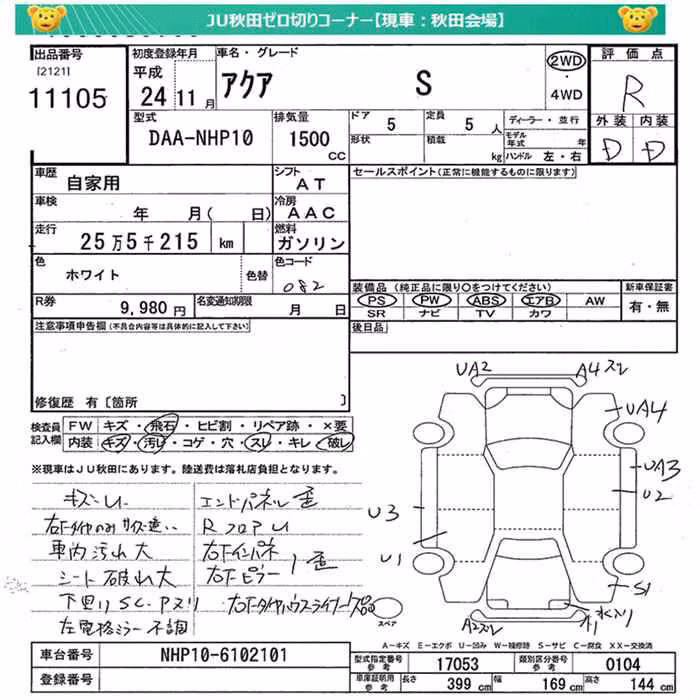 JU秋田ゼロ切りコーナー【現車：秋田会場】
出品番号
[2121]
11105
初度登録年月
平成
24 11月
車名・グレード
アクア S
2WD
・
4WD
評価点
R
外装 内装
D D
型式
DAA-NHP10
排気量
1500
CC
ドア 5
形状
定員 5 人
積載 kg
ディーラー・並行
モデル年式 年
ハンドル 左・右
車歴
自家用
シフト
AT
車検
年 月( 日)
冷房
AAC
走行
25万5千215 km
燃料
ガソリン
色
ホワイト
色替
色コード
082
R券
9,980円
名変通知期限
月 日
セールスポイント(正常に機能するものに限ります)
装備品 (純正品に限り○をつけてください)
PS PW ABS エアB AW
SR ナビ TV カワ
新車保証書
有・無
後日品
注意事項申告欄(不具合内容等は具体的に記入して下さい)
修復歴 有[箇所 ]
検査員
記入欄
FW キズ・飛石・ヒビ割・リペア跡・×要
内装 キズ・汚れ・コゲ・穴・スレ・キレ・破れ
※現車はJU秋田にあります。陸送費は落札店負担となります。
キズ・U
右下タイヤのみサイズ違い
車内汚れ大
シート破れ大
下回りSC・Pヌリ
左電格ミラー不調
エンドパネル歪
RフロアU
右下インパネ
右下ピラー 歪
右下タイヤハウスライナー欠品
UA2
A4スレ
UA4
UA3
U2
U3
U1
S1
A2スレ
スペア
A=キズ E=エクボ U=凹み W=補修跡 S=サビ C=腐食 XX=交換済
車台番号
NHP10-6102101
登録番号
型式指定番号
参考
17053
類別区分番号
参考
0104
車庫証明用
参考
長さ 399 cm
幅 169 cm
高さ 144 cm